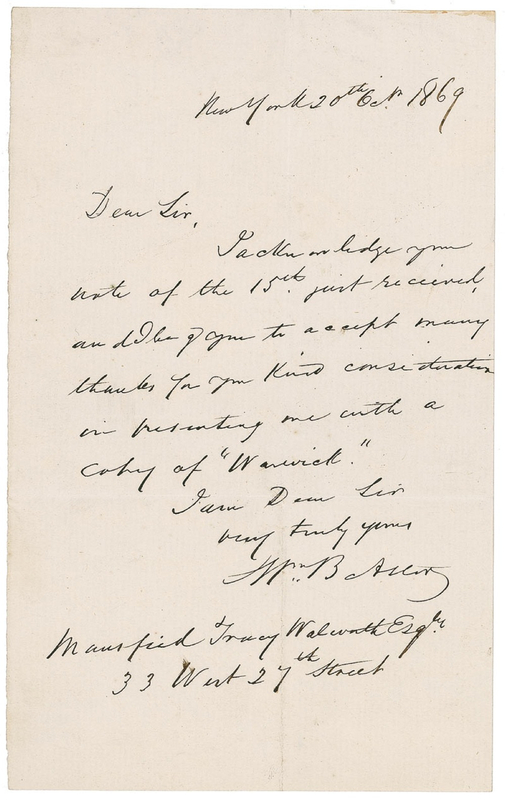 New York 20th Oct. 1869
Dear Sir,
I acknowledge your
note of the 15th. just received,
and I beg you to accept many
thanks for your kind consideration
in presenting me with a
copy of "Warwick."
I am Dear Sir
very truly yours
Wm. B Astor
Mansfield Tracy Walworth Esqre.
33 West 27th Street